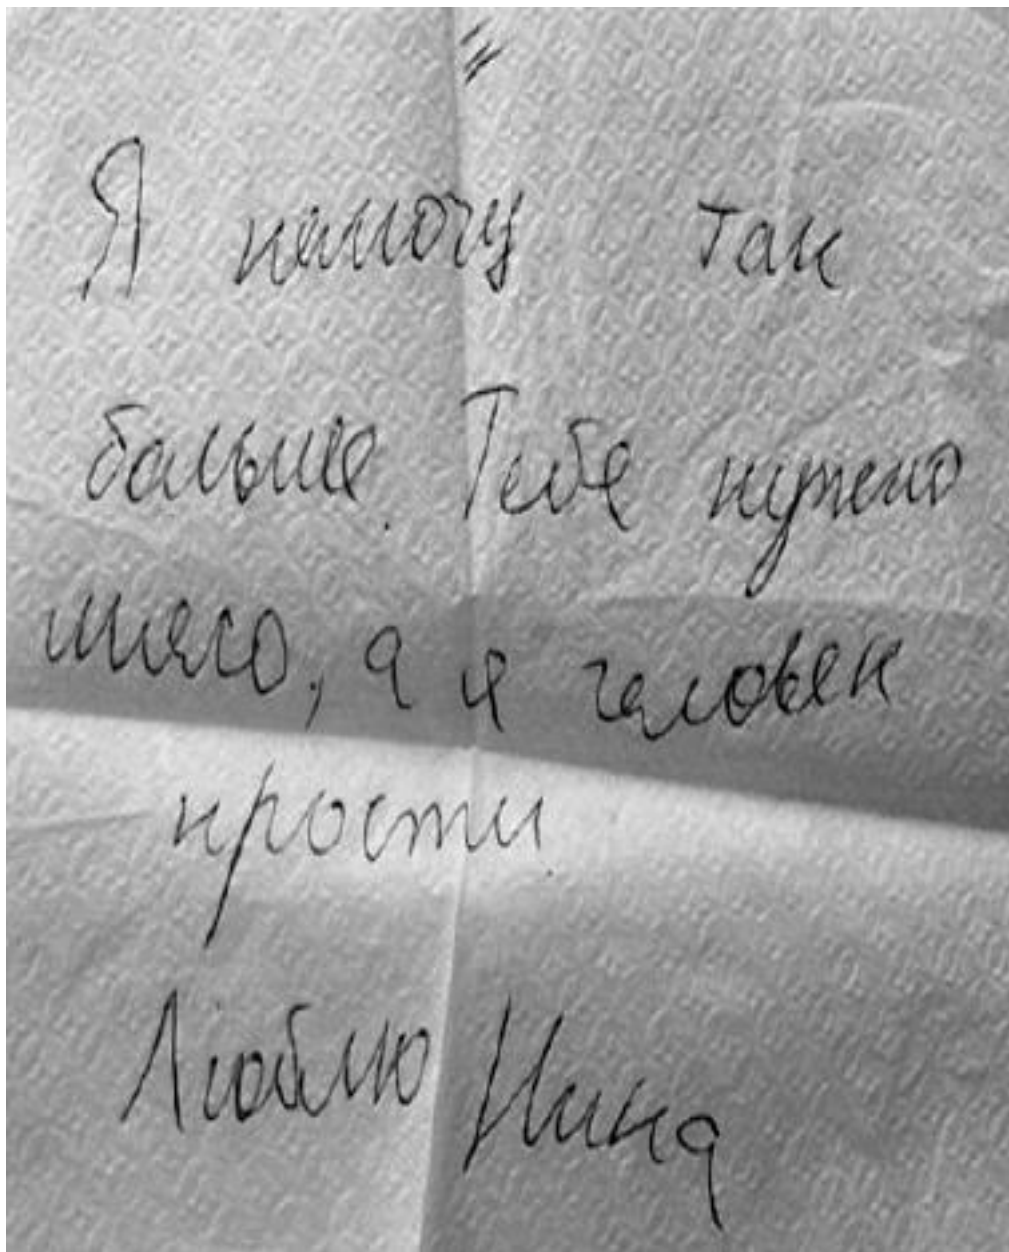 Я немогу так
больше. Тебе нужно
мясо, а я человек
прости.
Люблю Нина